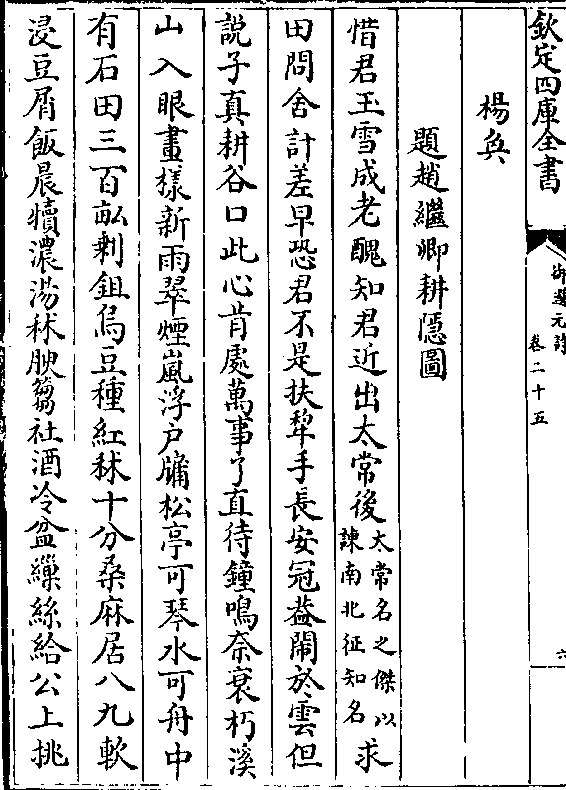 欽定四庫全書
御選元詩
卷二十五
六
楊奐
題趙繼卿耕隱圖
惜君玉雪成老醜知君近出太常後太常名之傑以諫南北征知名求
田問舍計差早恐君不是扶犂手長安冠葢鬧於雲但
說子真耕谷口此心肯處萬事了直待鐘鳴奈衰朽溪
山入眼畫樣新雨翠煙嵐浮户牖松亭可琴水可舟中
有石田三百畝剩鉏烏豆種紅秫十分桑麻居八九軟
浸豆屑飯晨犢濃湯秫腴篘社酒冷盆繅絲給公上挑